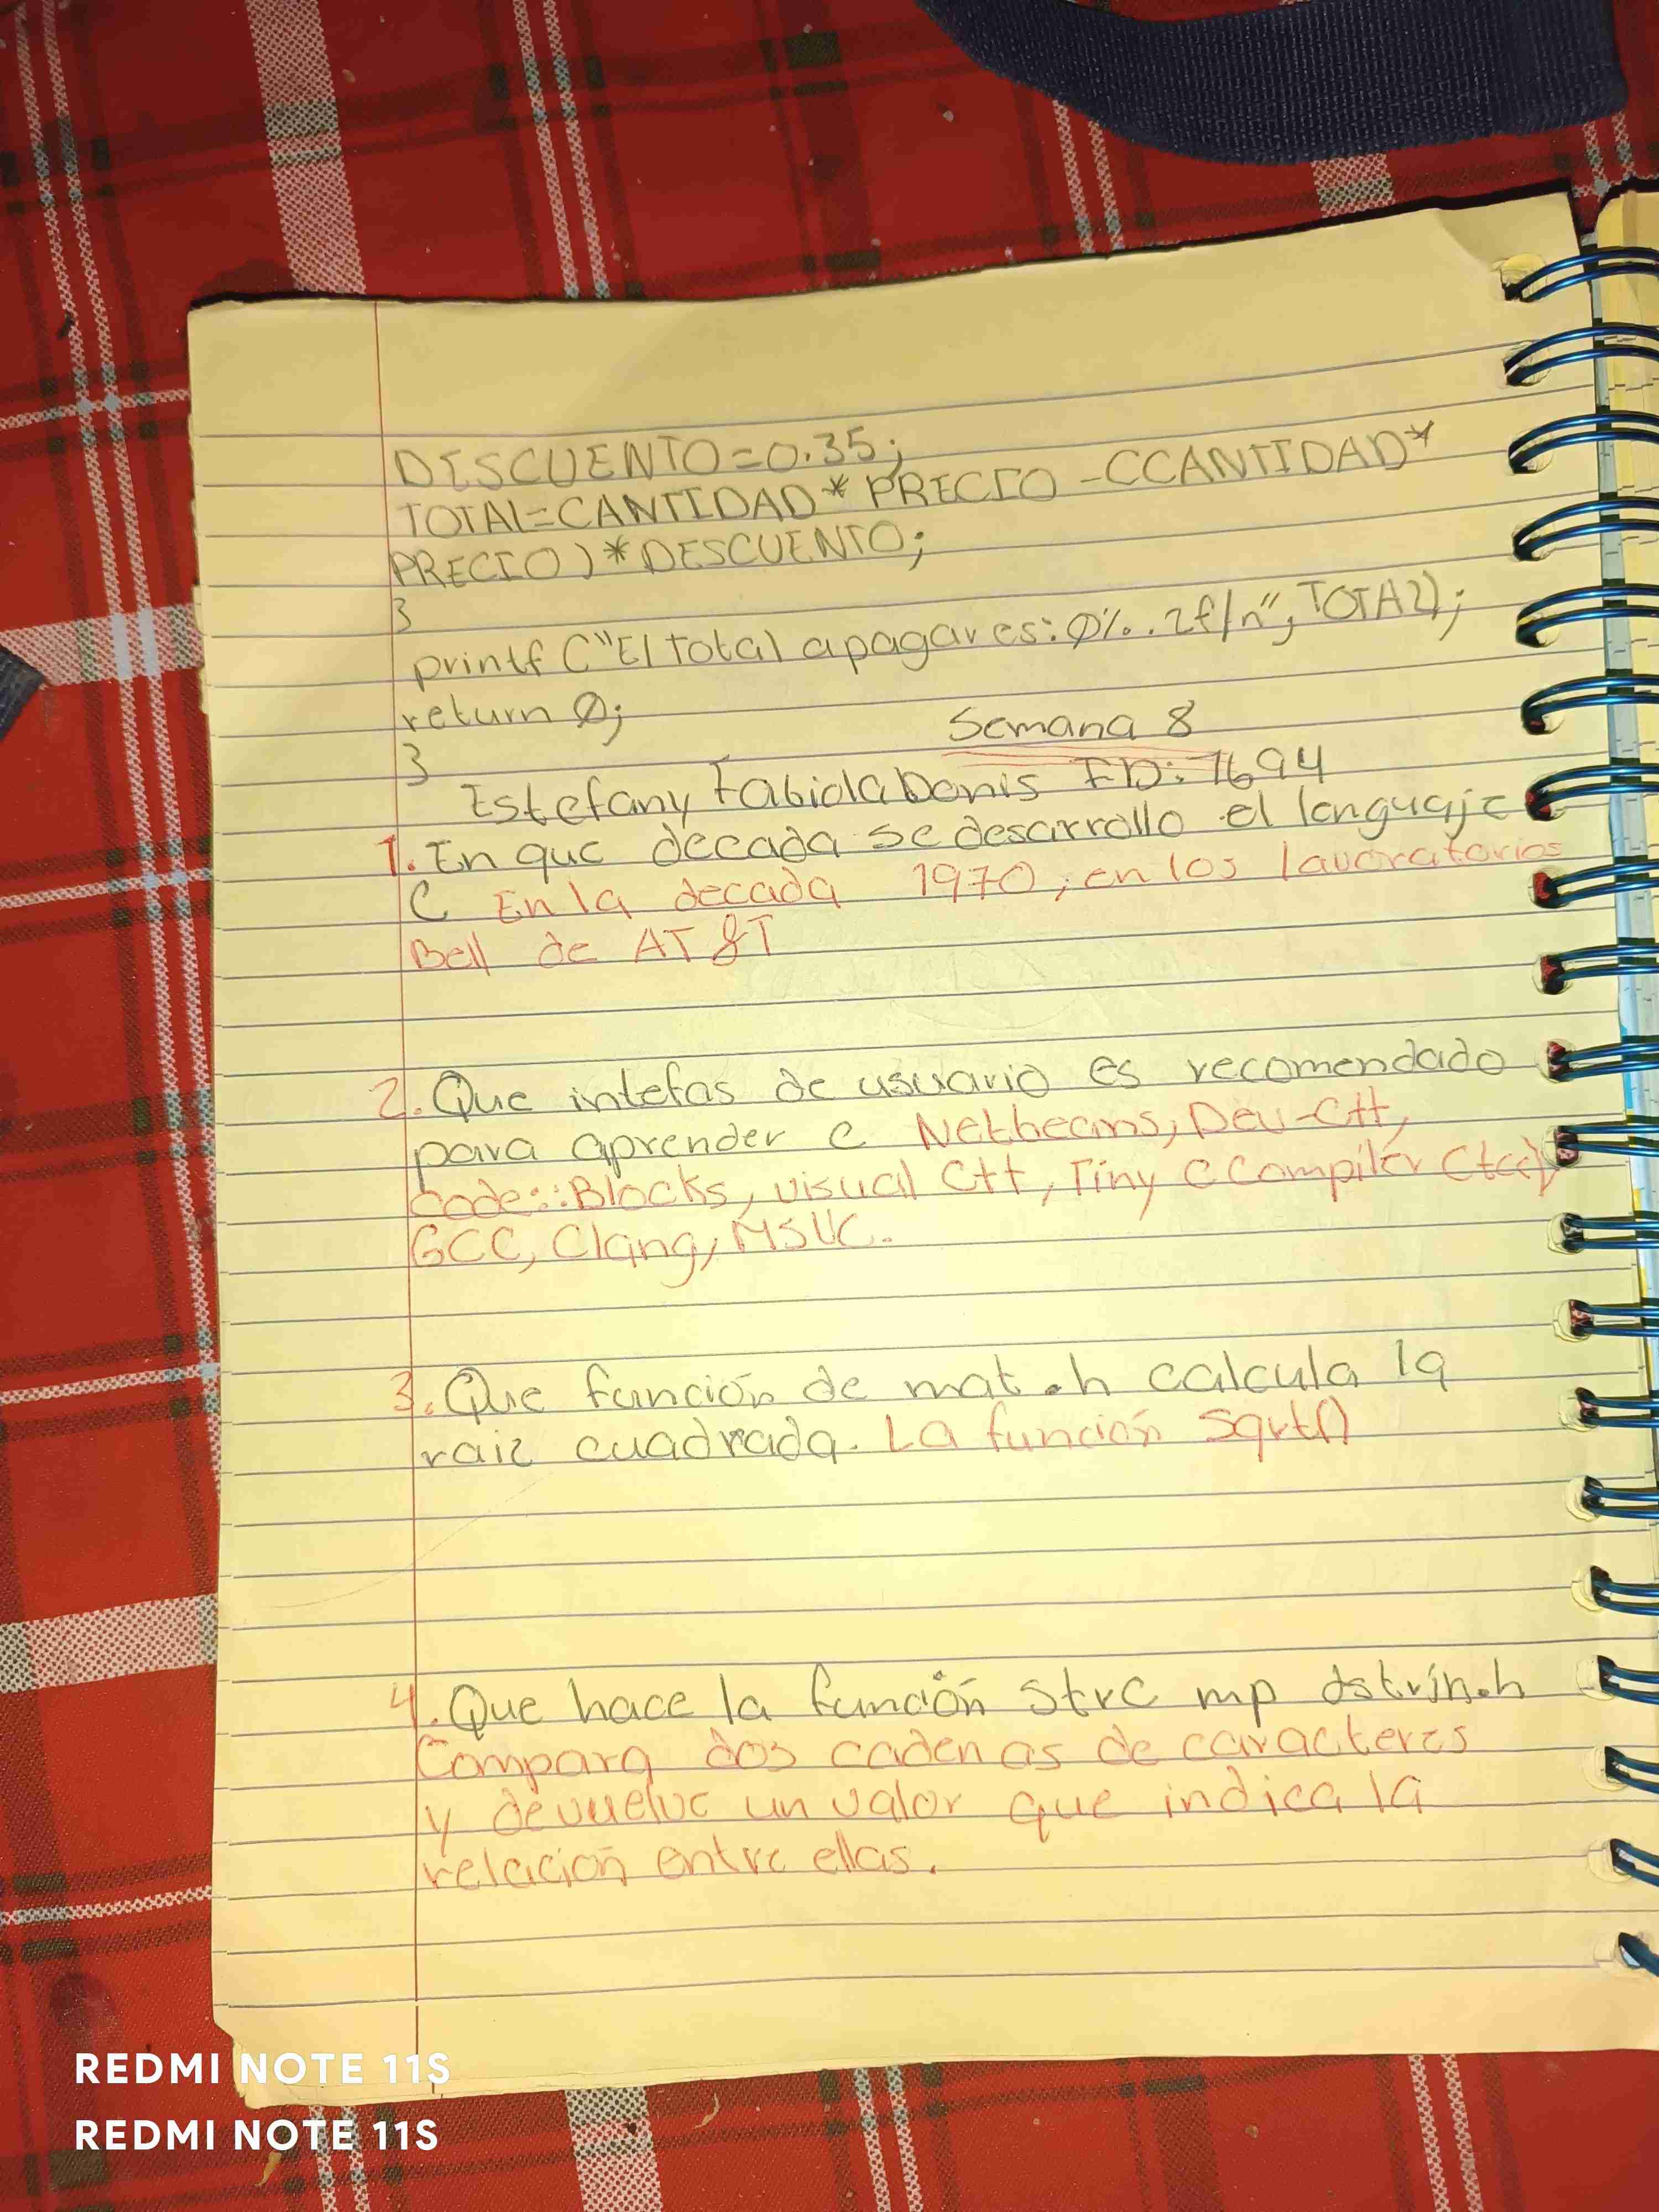 DISCUENTO=0.35;
TOTAL=CANTIDAD* PRECIO -CCANTIDAD*
PRECIO)*DESCUENTO;
}
printf ("El total a pagar es: %.2f/n", TOTAL);
return 0;
Semana 8
}
Estefany Fabiola Donis ID: 7694
1. En que decada se desarrollo el lenguaje
C En la decada 1970, en los lavoratorios
Bell de AT&T
2. Que intefas de usuario es recomendado
para aprender C Netbeans, Dev-C++,
Code::Blocks, visual C++, Tiny C Compiler (tcc)
GCC, Clang, MSVC.
3. Que función de mat.h calcula la
raiz cuadrada. La función Sqrt()
4. Que hace la función Strc mp dstrin.h
Compara dos cadenas de caracteres
y devuelve un valor que indica la
relación entre ellas.
REDMI NOTE 11S
REDMI NOTE 11S